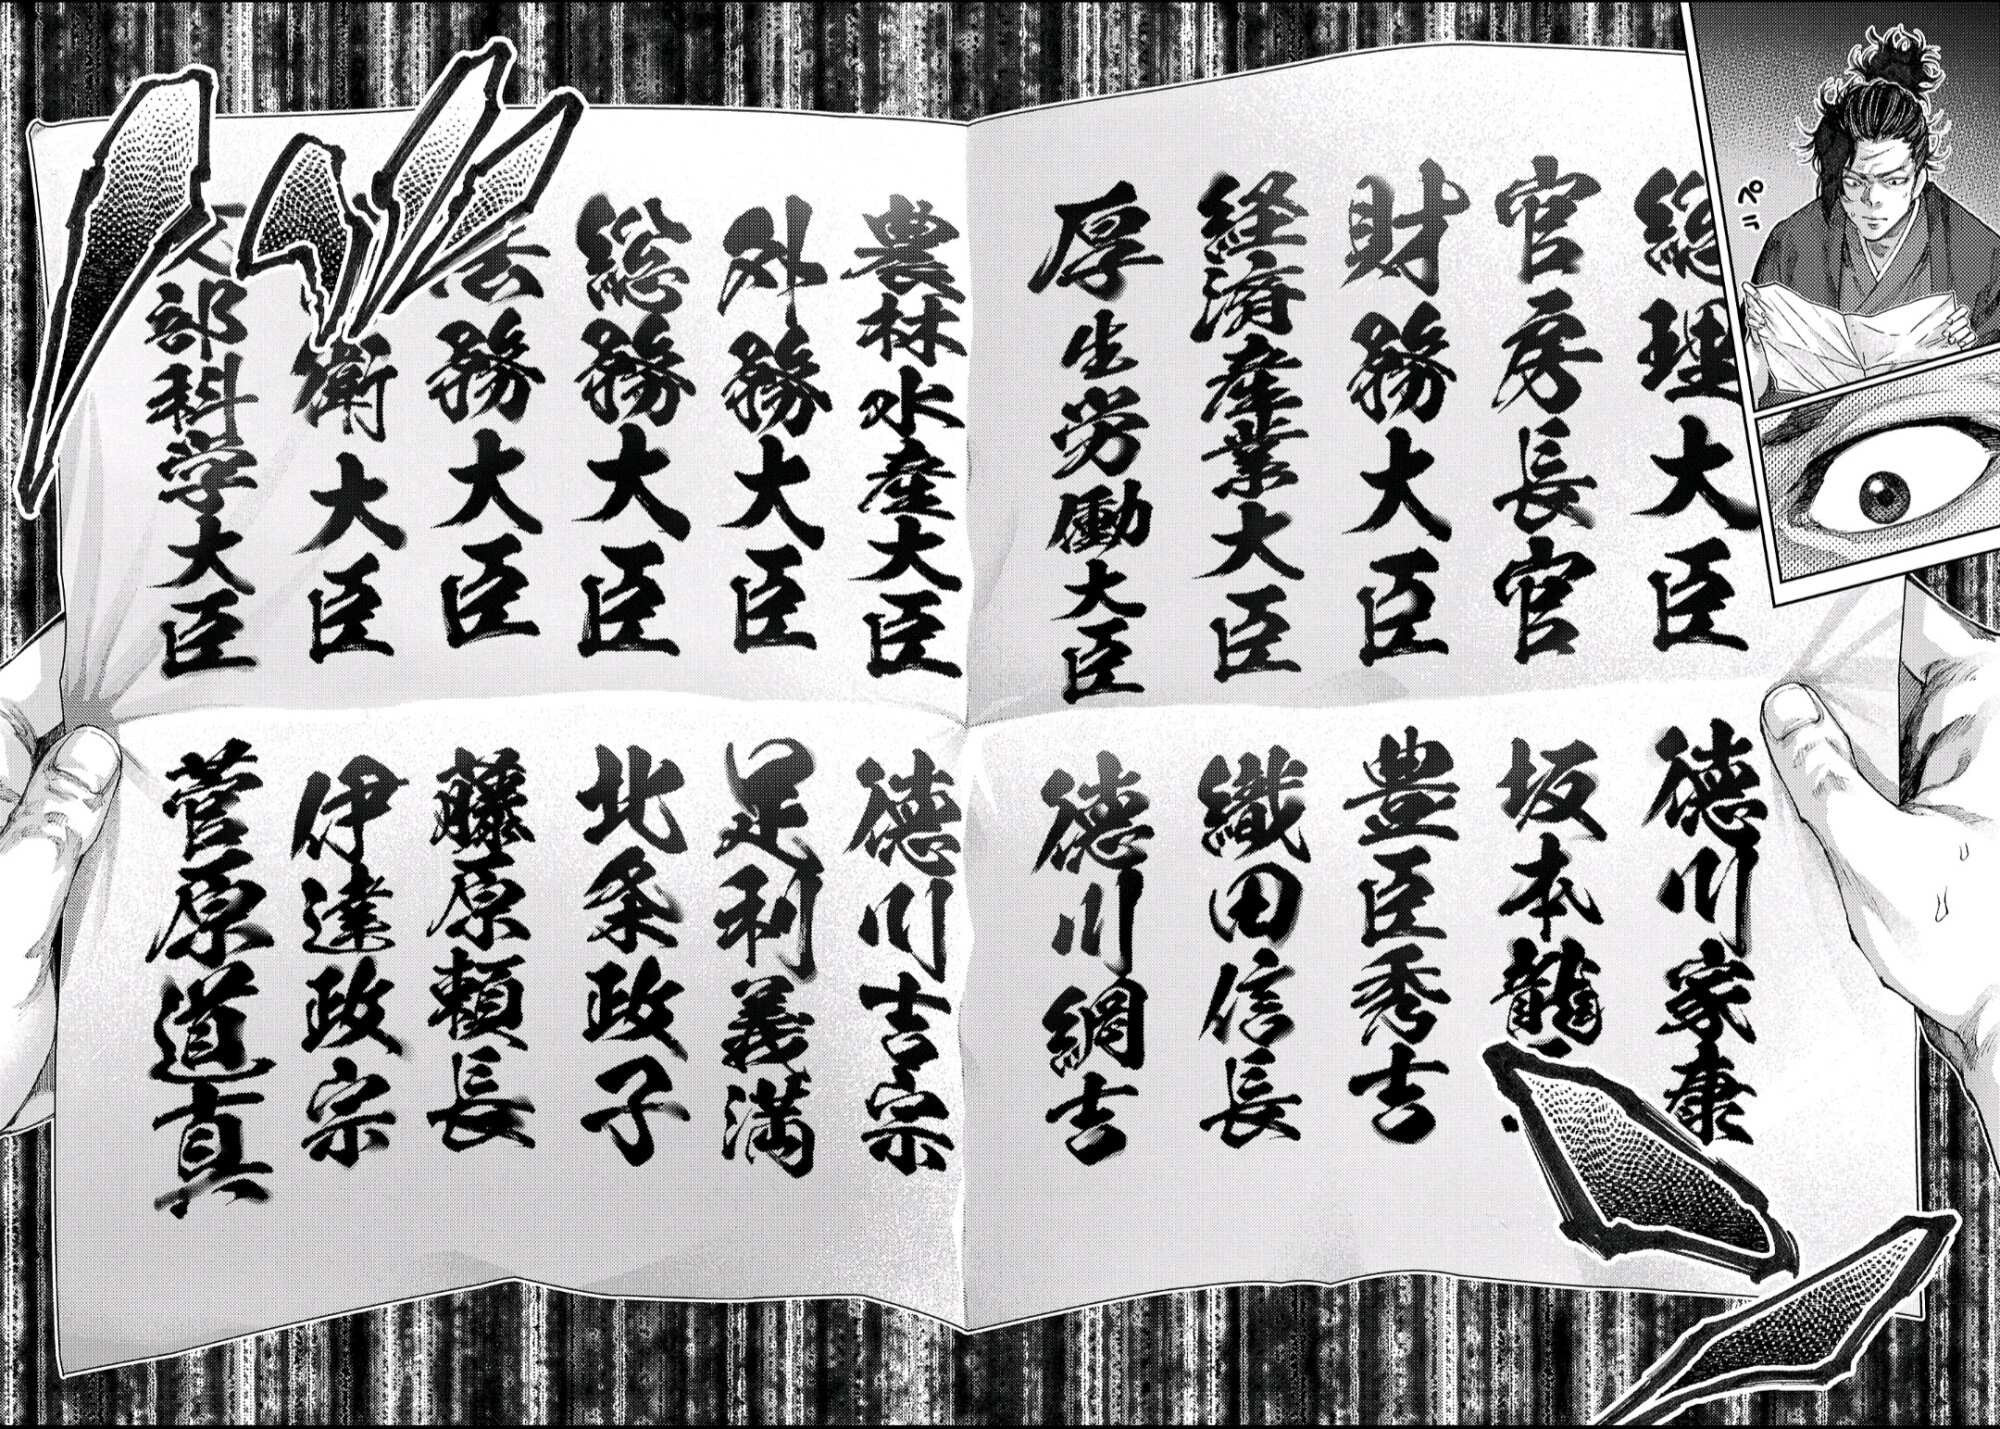 総理大臣
徳川家康
官房長官
坂本龍
財務大臣
豊臣秀吉
経済産業大臣
織田信長
厚生労働大臣
徳川綱吉
農林水産大臣
徳川吉宗
外務大臣
足利義満
総務大臣
北条政子
法務大臣
藤原頼長
衛大臣
伊達政宗
文部科学大臣
菅原道真